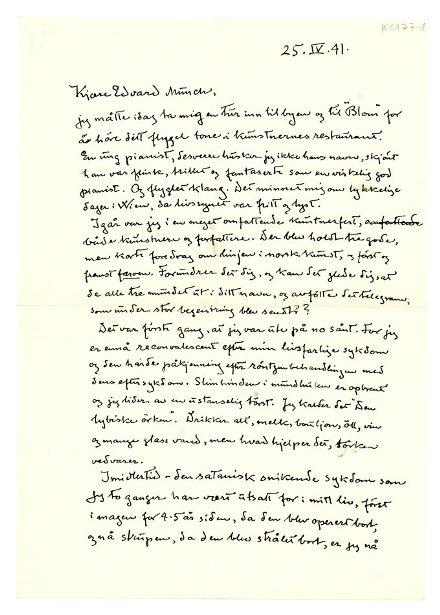 K1177-1
25. IV. 41.
Kjære Edvard Munch,
jeg måtte idag ta mig en tur inn til byen og til "Blom" for
å höre dett flygel tone i kunstnernes restaurant.
En ung pianist, desverre husker jeg ikke hans navn, skjönt
han var flink, stillet og fantaserte som en virkelig god
pianist. Og flyglet klang. Det minnet mig om lykkelige
dager i Wien, da livssynet var fritt og lyst.
Igår var jeg i en meget omfattende kunstnerfest,
både kunstnere og forfattere. Der blev holdt tre gode,
men korte foredrag om linjen i norsk kunst, og först og
fremst farven. Forundrer det dig, og kan det glede dig, at
de alle tre mundet ut i ditt navn, og avfötte det telegram,
som under stor begeistring blev sendt?
Det var förste gang, at jeg var ute på no sånt. For jeg
er ennå reconvalescent efter min livsfarlige sykdom
og den harde påkjenning efter röntgenbehandlingen med
dens eftersykdom. Slimhinden i mundhulen er opbrent
og jeg lider av en ustanselig törst. Jeg kalder det "Den
lybiske örken". Drikker alt, melk, bouljong, öll, vin
og mange glass vand, men hvad hjelper det, törken
vedvarer.
Imidlertid – den satanisk snikende sykdom som
jeg to ganger har vært utsatt for i mitt liv, först
i magen for 4-5 år siden, da den blev operert bort,
og nå strupen, da den blev strålet bort, er jeg nå